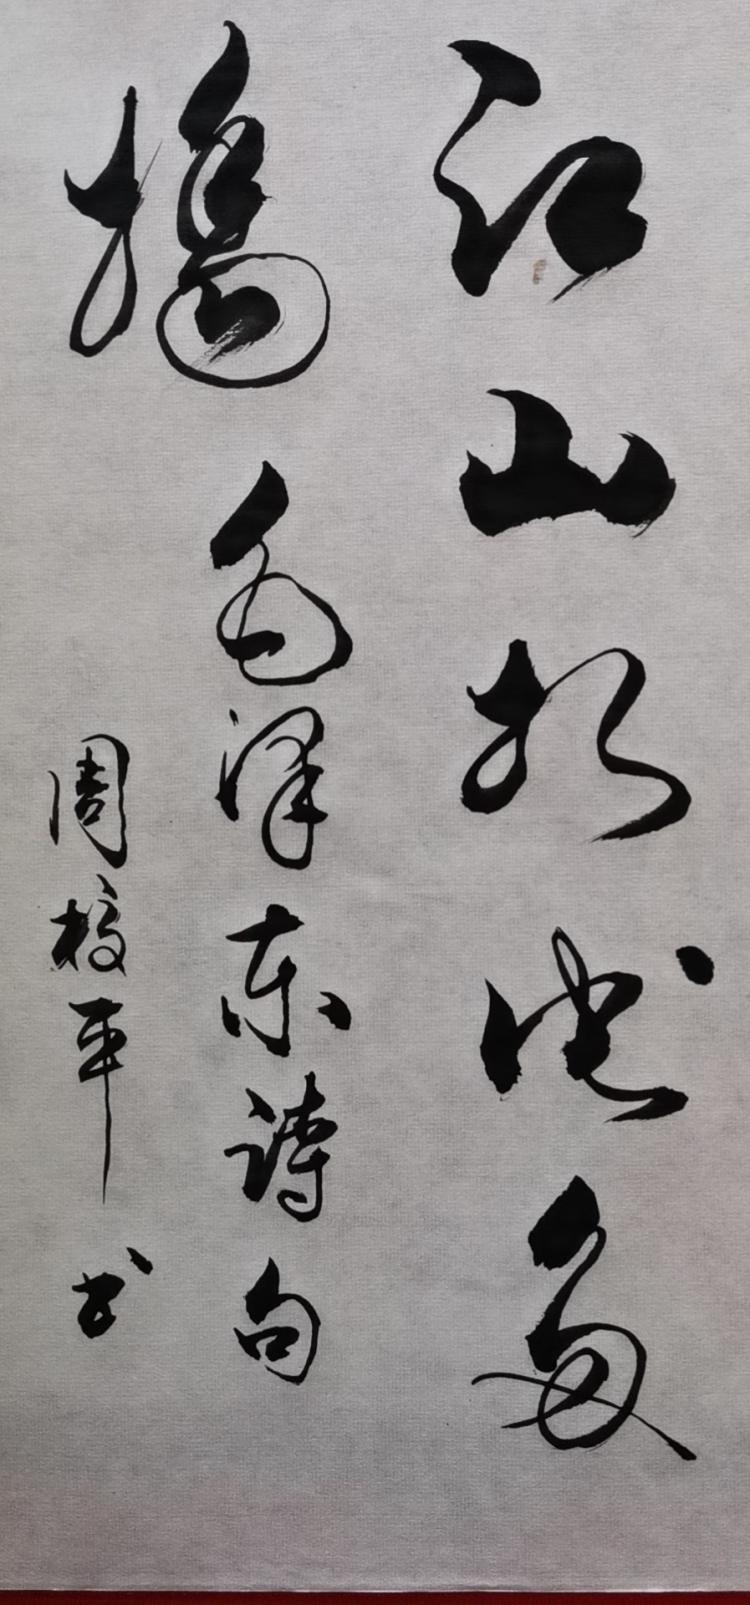 江山如此多
娇毛泽东诗句
周校平书